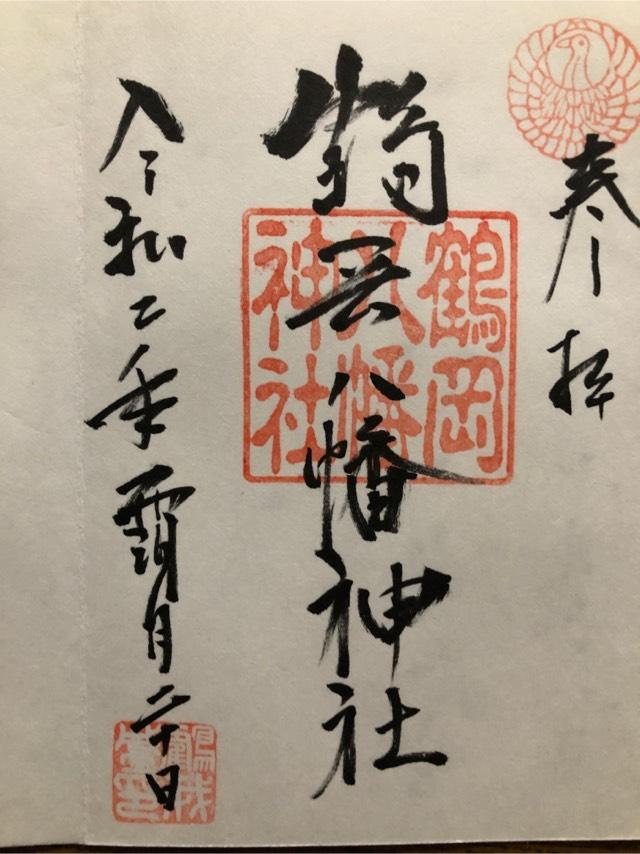 奉拝
鶴岡八幡神社
鶴岡
八幡
神社
令和二年霜月二十日